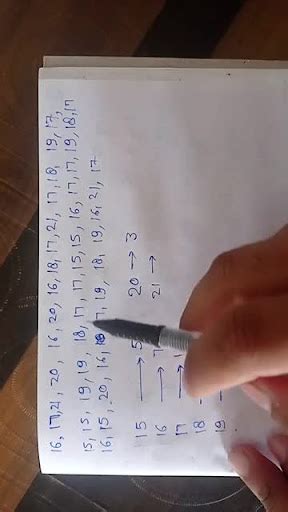 16, 17, 21, 20, 16, 20, 16, 18, 17, 21, 17, 18, 19, 17,
15, 15, 19, 19, 18, 17, 17, 15, 15, 16, 17, 17, 19, 18, 17
16, 15, 20, 16, 19, 18, 19, 16, 21, 17
15 → 5 20 → 3
16 → 21 →
17 →
18
19